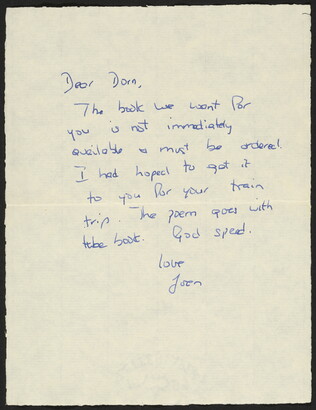 Dear Dorn,
The book we want for
you is not immediately
available & must be ordered.
I had hoped to get it
to you for your train
trip. The poem goes with
the book. God speed.
love
Joan